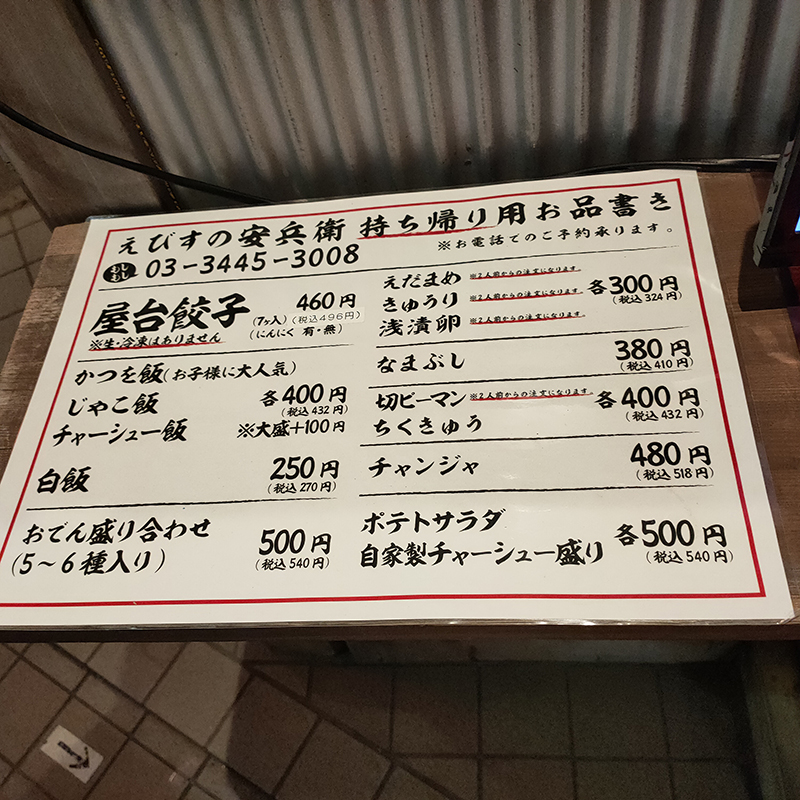 えびすの安兵衛 持ち帰り用お品書き
03-3445-3008
※お電話でのご予約承ります。
屋台餃子
460円
(7ヶ入)(税込496円)
※生・冷凍はありません
(にんにく 有・無)
かつを飯(お子様に大人気)
じゃこ飯
各400円
(税込432円)
チャーシュー飯
※大盛+100円
白飯
250円
(税込270円)
おでん盛り合わせ
(5〜6種入り)
500円
(税込540円)
えだまめ ※2人前からの注文になります
きゅうり ※2人前からの注文になります
浅漬卵 ※2人前からの注文になります
各300円
(税込324円)
なまぶし
380円
(税込410円)
切ピーマン ※2人前からの注文になります
ちくきゅう
各400円
(税込432円)
チャンジャ
480円
(税込518円)
ポテトサラダ
自家製チャーシュー盛り
各500円
(税込540円)